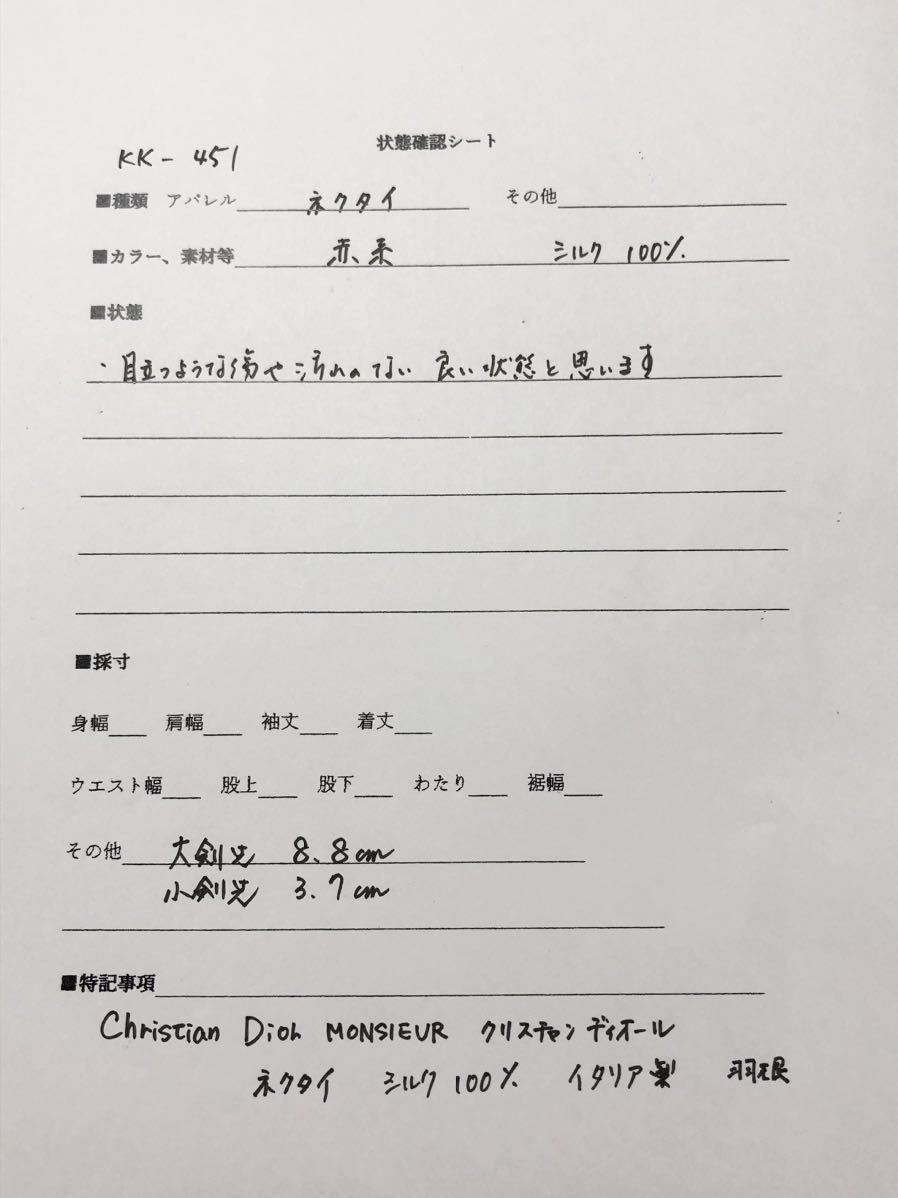 状態確認シート
KK-451
■種類 アパレル ネクタイ その他
■カラー、素材等 赤、系 シルク 100%
■状態
・目立つような傷や汚れのない 良い状態と思います
■採寸
身幅 肩幅 袖丈 着丈
ウエスト幅 股上 股下 わたり 裾幅
その他 大剣先 8.8cm
小剣先 3.7cm
■特記事項
Christian Dior MONSIEUR クリスチャンディオール
ネクタイ シルク 100% イタリア製 羽根